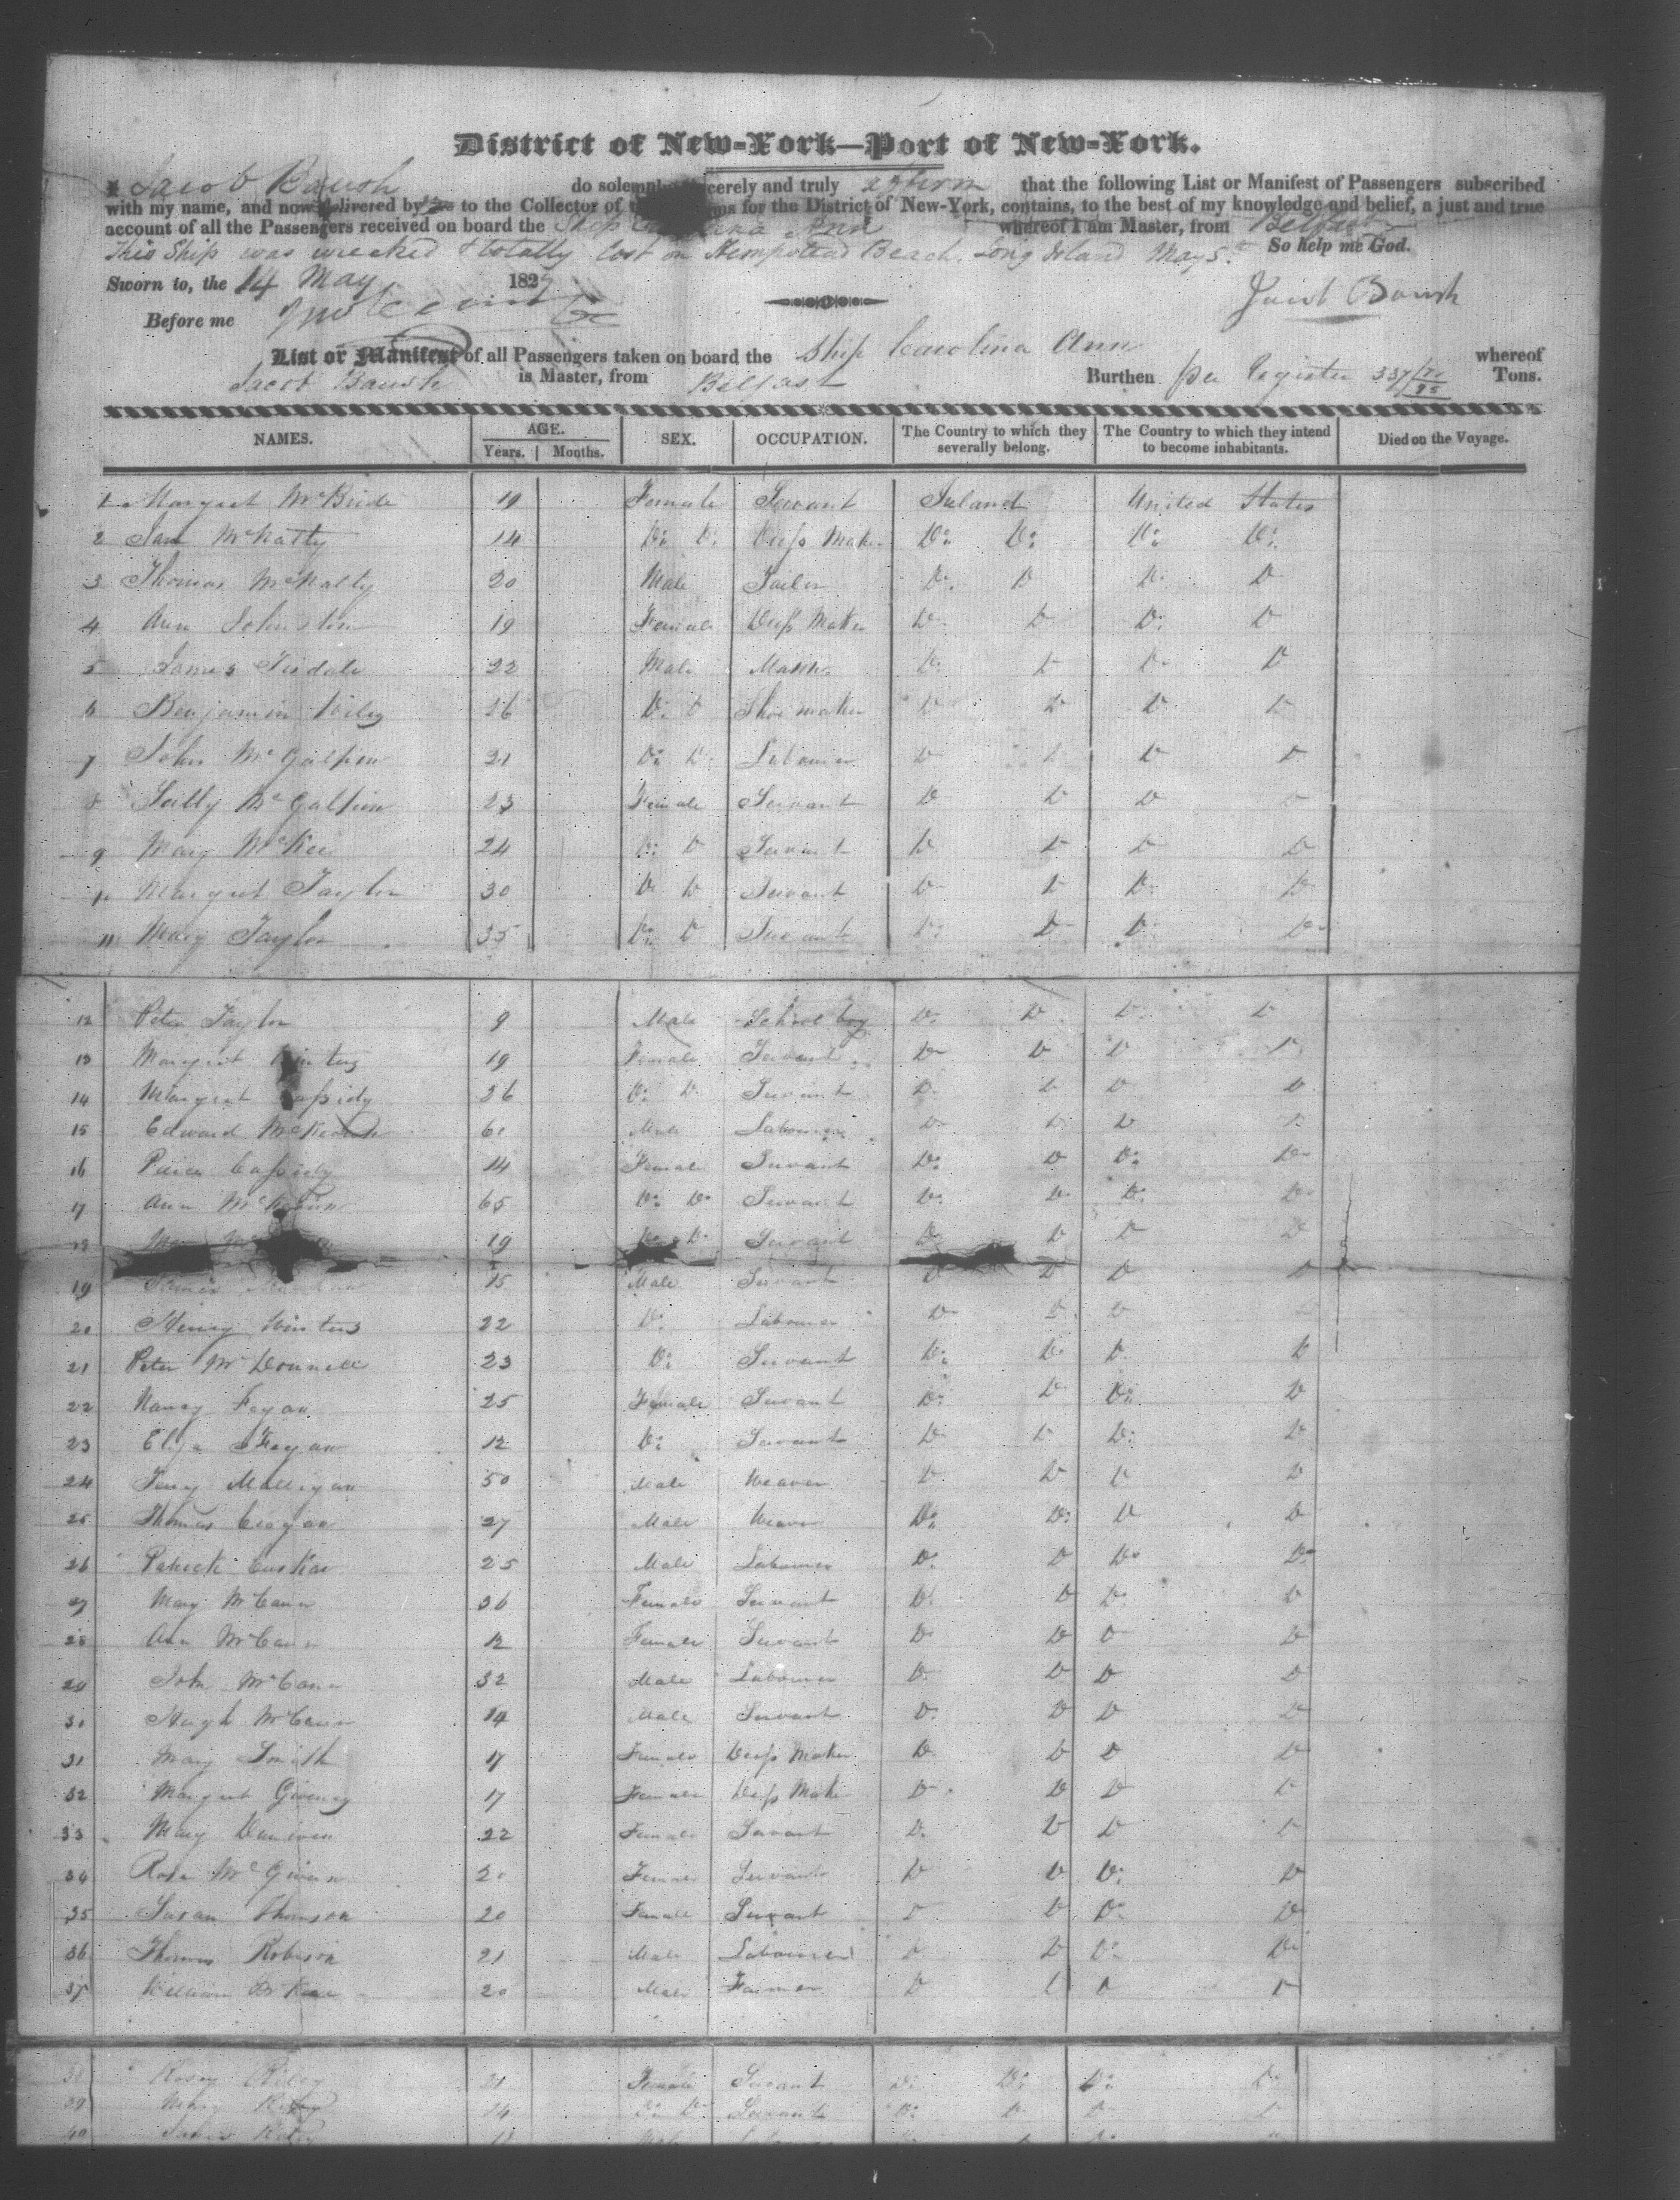 District of New-York—Port of New-York.
I Jacob Baush do solemnly, sincerely and truly affirm that the following List or Manifest of Passengers subscribed
with my name, and now delivered by me to the Collector of the Customs for the District of New-York, contains, to the best of my knowledge and belief, a just and true
account of all the Passengers received on board the Ship Carolina Ann whereof I am Master, from Belfast
This Ship was wrecked & totally lost on Hempstead Beach, Long Island May 5th So help me God.
Sworn to, the 14 May 1827 Jacob Baush
Before me
List or Manifest of all Passengers taken on board the Ship Carolina Ann whereof
Jacob Baush is Master, from Belfast Burthen per Register 337 Tons.
NAMES. AGE. SEX. OCCUPATION. The Country to which they severally belong. The Country to which they intend to become inhabitants. Died on the Voyage.
Years. Months.
1 Margret McBride 19 Female Servant Ireland United States
2 Jane McNatty 14 Do Do Dress Maker Do Do Do Do
3 Thomas McNalty 20 Male Tailor Do D Do D
4 Ann Johnston 19 Female Dress Maker Do D Do D
5 James Tisdale 22 Male Mason Do D Do D
6 Benjamin Wiley 26 Do D Shoe maker D D D D
7 John McGalpin 21 Do D Labourer D D D D
8 Sally McGalpin 23 Female Servant D D D D
9 Mary McKee 24 Do D Servant D D D D
10 Margret Taylor 30 D D Servant D D D D
11 Mary Taylor 35 Do D Servant Do D D Do
12 Peter Taylor 9 Male School boy Do D D D
13 Margret 19 Female Servant Do D D D
14 Margret Cassidy 26 Do D Servant D D D D
15 Edward 60 Male Labourer D D D D
16 Cassidy 14 Female Servant Do D Do Do
17 Ann 65 Do Do Servant Do Do Do Do
18 19 Do Do Servant Do D D D
19 James 15 Male Servant D D D D
20 Henry Winters 22 Do Labourer D D D D
21 Peter McDonnell 23 Do Servant Do Do D D
22 Nancy Fegan 25 Female Servant Do D Do D
23 Eliza Fegan 12 Do Servant D D Do D
24 Terry Mulligan 50 Male Weaver D D D D
25 Thomas Creggan 27 Male Weaver Do Do D D
26 Patrick 25 Male Labourer D D Do Do
27 Mary McCann 36 Female Servant D D D D
28 Ann McCann 12 Female Servant D D D D
29 John McCann 32 Male Labourer D D D D
30 Hugh McCann 14 Male Servant D D D D
31 Mary Smith 17 Female Dress Maker D D D D
32 Margret 17 Female Dress Maker D D D D
33 Mary 22 Female Servant D D D D
34 Rose 20 Female Servant D D Do D
35 Susan Thomson 20 Female Servant D D Do D
36 Thomas Robison 21 Male Labourer D D Do D
37 William McKee 20 Male Farmer D D D D
38 Rosey Riley 21 Female Servant Do Do Do D
39 Mary Riley 14 Do D Servant Do D D D
40 James Riley